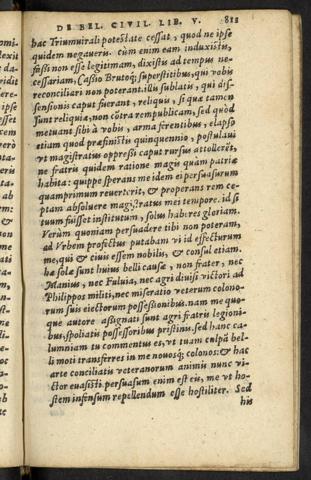 DE BEL. CIVIL. LIB. V. 811
hac Triumvirali potestate cessat, quod ne ipse
quidem negaveris. cùm enim eam induxistis,
fassi non esse legitimam, dixistis ad tempus ne-
cessariam, Cassio Brutoq; superstitibus, qui vobis
reconciliari non poterant. illis sublatis, qui dis-
sensionis caput fuerant, reliquis, si quæ tamen
sunt reliquiæ, non cõtra rempublicam, sed quòd
metuant sibi à vobis, arma ferentibus, elapso
etiam quod præfinistis quinquennio, postulavi
vt magistratus oppressi caput rursus attollerēt,
ne fratris quidem ratione magis quàm patriæ
habita: quippe sperans me idem ei persuasurum
quamprimum reverterit, & properans rem ce-
ptam absoluere magistratus mei tempore. id si
tuum fuisset institutum, solus haberes gloriam.
Verùm quoniam persuadere tibi non poteram,
ad Vrbem profectus putabam vi id effecturum
me, qui & civis essem nobilis, & consul etiam.
hæ solæ sunt huius belli causæ, non frater, nec
Manius, nec Fuluia, nec agri divisi victori ad
Philippos militi, nec miseratio veterum colono-
rum suis eiectorum possessionibus. nam me quo-
que autore assignati sunt agri fratris legioni-
bus, spoliatis possessoribus pristinis. sed hanc ca-
lumniam tu commentus es, vt tuam culpã bel-
li moti transferres in me novosq; colonos: & hac
arte conciliatis veteranorum animis nunc vi-
ctor euasisti. persuasum enim est eis, me vt ho-
stem infensum repellendum esse hostiliter. Sed
his